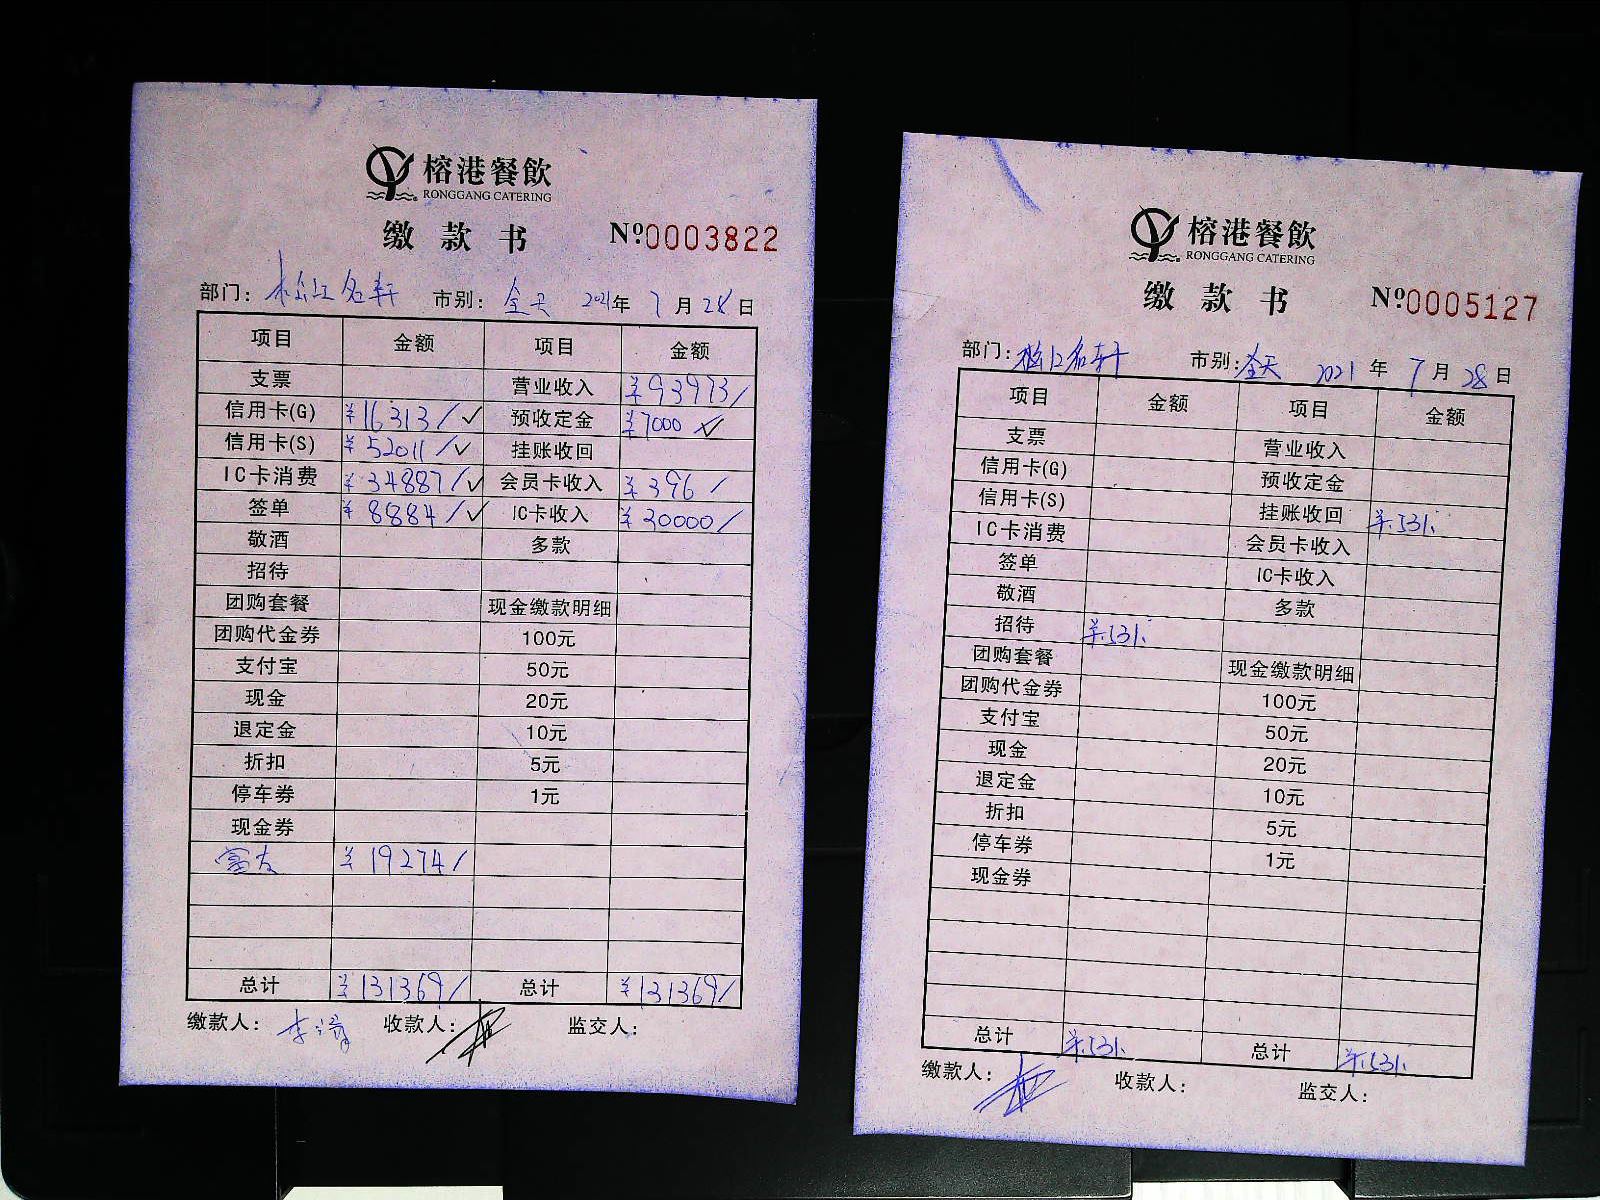 榕港餐飲
RONGGANG CATERING
缴款书 Nº0003822
部门: 松江名轩 市别: 全天 2021年 7月 28日
项目 金额 项目 金额
支票 营业收入 ¥93973/
信用卡(G) ¥16313/✓ 预收定金 ¥7000 ✓
信用卡(S) ¥52011/✓ 挂账收回
IC卡消费 ¥34887/✓ 会员卡收入 ¥396/
签单 ¥8884/✓ IC卡收入 ¥30000/
敬酒 多款
招待
团购套餐 现金缴款明细
团购代金券 100元
支付宝 50元
现金 20元
退定金 10元
折扣 5元
停车券 1元
现金券
富友 ¥19274/
总计 ¥131369/ 总计 ¥131369/
缴款人: 收款人: 监交人:
榕港餐飲
RONGGANG CATERING
缴款书 Nº0005127
部门: 松江名轩 市别: 全天 2021年 7月 28日
项目 金额 项目 金额
支票 营业收入
信用卡(G) 预收定金
信用卡(S) 挂账收回 ¥531.
IC卡消费 会员卡收入
签单 IC卡收入
敬酒 多款
招待 ¥531.
团购套餐 现金缴款明细
团购代金券 100元
支付宝 50元
现金 20元
退定金 10元
折扣 5元
停车券 1元
现金券
总计 ¥531. 总计 ¥531.
缴款人: 收款人: 监交人: